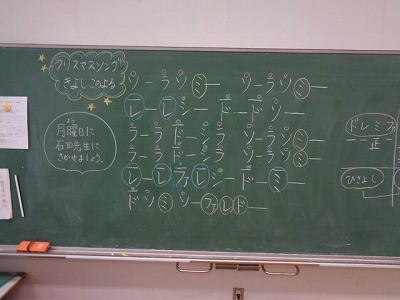 クリスマスソング
きよしこのよる
ソーラソミー ソーラソミー
レーレシー ドードソー
ララドーシラ ソーラソミー
ララドーシラ ソーラソミー
レーレファレシードーミー
ドソミソーファレドー
月曜日に
よう
石田先生に
きかせましょう。
ドレミフ
正
ひさよし